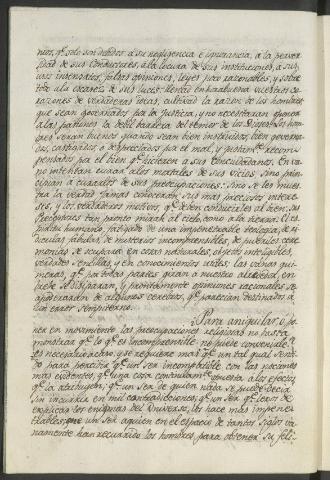 nios, q.e solo son devidos a su negligencia e ignorancia, a la perver
sidad de sus conductores, a la locura de sus instituciones, a sus
usos insensatos, falsas opiniones, leyes poco razonables, y sobre
todo a la escasez de sus luces. Llenad en hora buena vuestros co
razones de verdaderas ideas, cultivad la razon de los hombres
que sean governados por la Justicia, y no necesitareis oponer
a las pasiones la debil barrera del temor de los Dioses. Los hom
bres seran buenos quando sean bien instruidos, bien governa
dos, castigados, o despreciados por el mal, y justam.te recom
pensados por el bien q.e hicieren a sus conciudadanos. En va
no intentan curar a los mortales de sus vicios sino prin
cipian a curarlos de sus preocupaciones. Sino se les mues
tra la verdad jamas conoceran sus mas preciosos intere
ses, y los verdaderos motivos q.e deven conducirles al bien. Sus
Preceptores tan pronto miran al cielo, como a la tierra. El es
piritu humano fatigado de una impenetrable teologia, de ri
diculas fabulas, de misterios incomprensibles, de pueriles cere
monias se ocupara en cosas naturales, objetos inteligibles,
verdades sencillas, y en conocimientos utiles; las vanas qui
meras, q.e por todas partes giran a nuestro alrededor, en
breve se disiparan, y prontamente opiniones racionales se
apoderaran de algunos cerebros, q.e parecian destinados a
un error sempiterno.
Para aniquilar, o po
ner en movimiento las preocupaciones religiosas no basta
mostrar q.e lo q.e es incomprensible no puede convenirle?
es necesario acaso y se requiere mas q.e un tal qual senti
do para percibir q.e un Ser incompatible con las nociones
mas evidentes; q.e una cosa continuam.te opuesta a los efectos
q.e la atribuyen; q.e un Ser de quien nada se puede decir
sin incurrir en mil contradiciones; q.e un Ser q.e lejos de
explicar los enigmas del Universo, los hace mas impene
trables; que un Ser a quien en el espacio de tantos siglos va
namente han recurrido los hombres, para obtener su feli-